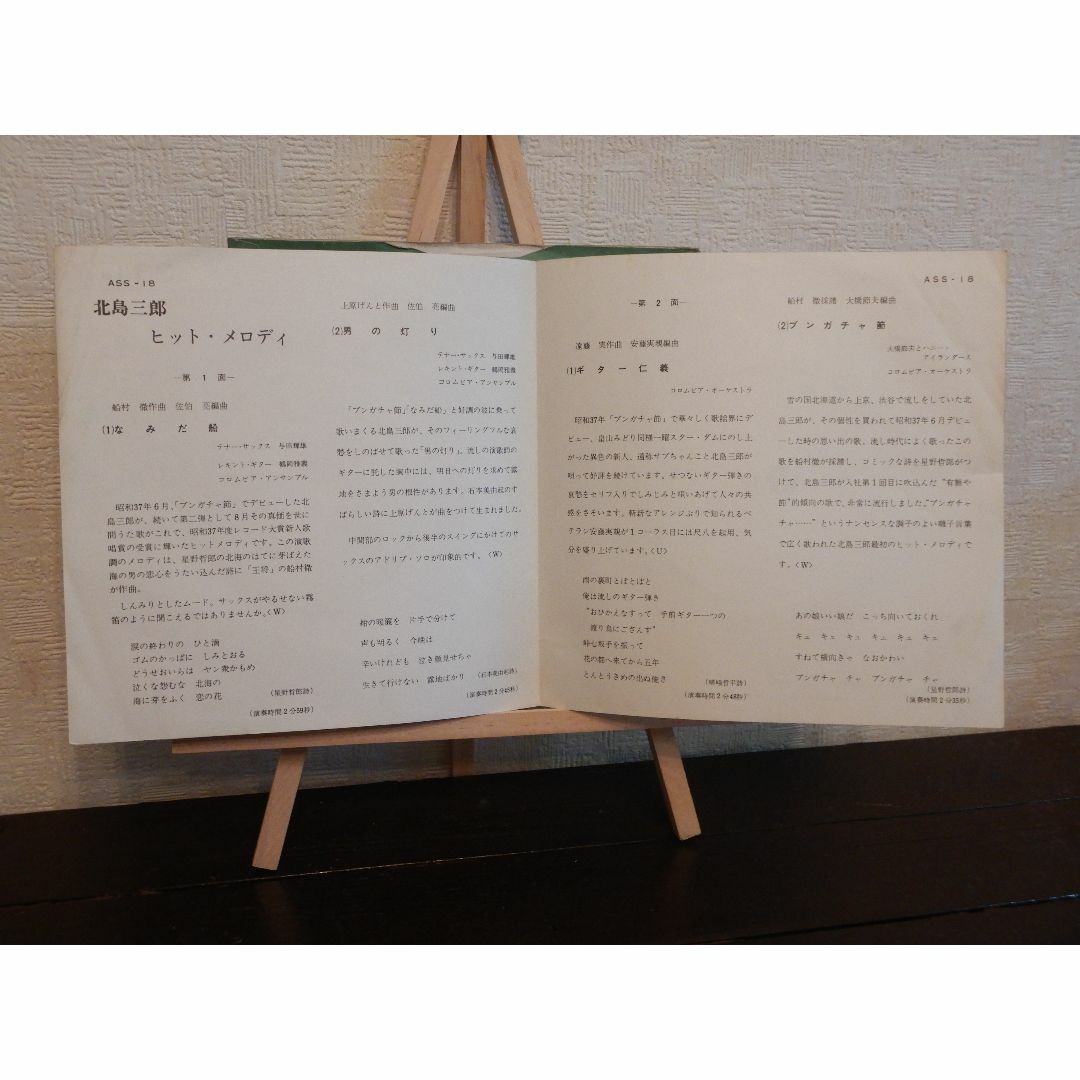 ASS-18
北島三郎
ヒット・メロディ
—第 1 面—
船村 徹作曲 佐伯 亮編曲
(1)な み だ 船
テナー・サックス 与田輝雄
レキント・ギター 鶴岡雅義
コロムビア・アンサンブル
昭和37年6月、「ブンガチャ節」でデビューした北
島三郎が、続いて第二弾として8月その真価を世に
問うた歌がこれで、昭和37年度レコード大賞新人歌
唱賞の受賞に輝いたヒットメロディです。この演歌
調のメロディは、星野哲郎の北海のはてに芽ばえた
海の男の恋心をうたい込んだ詩に「王将」の船村徹
が作曲。
しんみりとしたムード。サックスがやるせない霧
笛のように聞こえるではありませんか。〈W〉
涙の終わりの ひと滴
ゴムのかっぱに しみとおる
どうせおいらは ヤン衆かもめ
泣くな怨むな 北海の
海に芽をふく 恋の花
(星野哲郎詩)
(演奏時間2分59秒)
上原げんと作曲 佐伯 亮編曲
(2)男 の 灯 り
テナー・サックス 与田輝雄
レキント・ギター 鶴岡雅義
コロムビア・アンサンブル
「ブンガチャ節」「なみだ船」と好調の波に乗って
歌いまくる北島三郎が、そのフィーリングフルな哀
愁をしのばせて歌った「男の灯り」。流しの演歌師の
ギターに託した胸中には、明日への灯りを求めて露
地をさまよう男の根性があります。石本美由起のす
ばらしい詩に上原げんとが曲をつけて生まれました。
中間部のロックから後半のスイングにかけてのサ
ックスのアドリブ・ソロが印象的です。〈W〉
紺の暖簾を 片手で分けて
声も明るく 今晩は
辛いけれども 泣き顔見せちゃ
生きて行けない 露地ばかり
(石本美由起詩)
(演奏時間2分45秒)
—第 2 面—
遠藤 実作曲 安藤実親編曲
(1)ギ タ ー 仁 義
コロムビア・オーケストラ
昭和37年「ブンガチャ節」で華々しく歌謡界にデ
ビュー、畠山みどり同様一躍スター・ダムにのし上
がった異色の新人、通称サブちゃんこと北島三郎が
唄って好評を続けています。せつないギター弾きの
哀愁をセリフ入りでしみじみと唄いあげて人々の共
感をさそいます。斬新なアレンジぶりで知られるベ
テラン安藤実親が1コーラス目には尺八を起用、気
分を盛り上げています。〈U〉
雨の裏町とぼとぼと
俺は流しのギター弾き
“おひかえなすって 手前ギター一つの
渡り鳥にござんす”
峠七坂手を振って
花の都へ来てから五年
とんとうきめの出ぬ俺さ
(嵯峨哲平詩)
(演奏時間2分48秒)
ASS-18
船村 徹採譜 大橋節夫編曲
(2)ブ ン ガ チ ャ 節
大橋節夫とハニー・
アイランダース
コロムビア・オーケストラ
雪の国北海道から上京、渋谷で流しをしていた北
島三郎が、その個性を買われて昭和37年6月デビュ
ーした時の思い出の歌、流し時代によく歌ったこの
歌を船村徹が採譜し、コミックな詩を星野哲郎がつ
けて、北島三郎が入社第1回目に吹込んだ “有難や
節”的傾向の歌で、非常に流行しました“ブンガチャ
チャ……”というナンセンスな調子のよい囃子言葉
で広く歌われた北島三郎最初のヒット・メロディで
す。〈W〉
あの娘いい娘だ こっち向いておくれ
キュ キュ キュ キュ キュ キュ
すねて横向きゃ なおかわい
ブンガチャ チャ ブンガチャ チャ
(星野哲郎詩)
(演奏時間2分35秒)